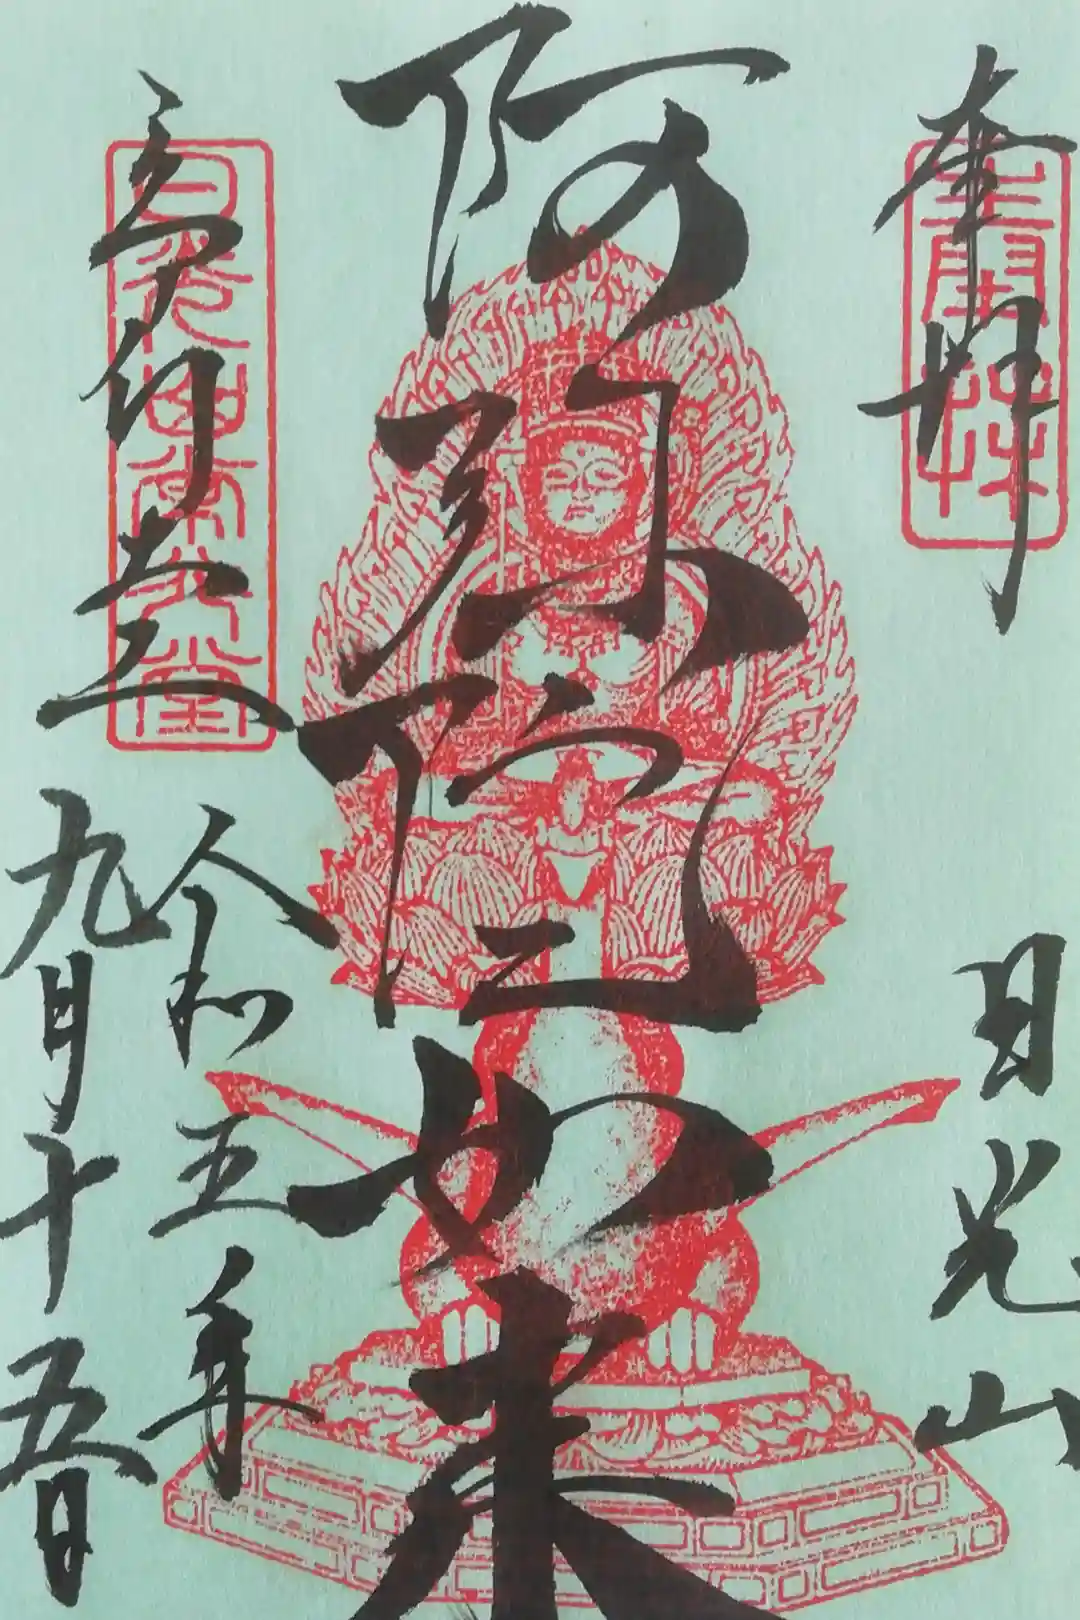 奉拝
日光山
阿弥陀如来
常行堂
令和五年
九月十五日
日光山常行堂